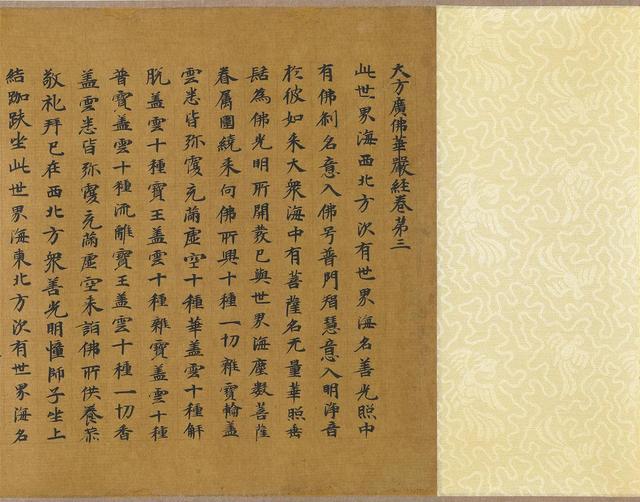 大方廣佛華嚴経卷第三
此世界海西北方次有世界海名善光照中
有佛剎名意入佛号普門智慧意入明淨音
於彼如来大衆海中有菩薩名无量華照垂
髻為佛光明所開發已與世界海塵數菩薩
眷属圍繞来向佛所興十種一切雜寶輪盖
雲悉皆弥覆充滿虛空十種華盖雲十種解
脫盖雲十種寶王盖雲十種雜寶盖雲十種
普寶盖雲十種流離寶王盖雲十種一切香
盖雲悉皆弥覆充滿虛空来詣佛所供養恭
敬礼拜已在西北方衆善光明幢師子坐上
結跏趺坐此世界海東北方次有世界海名